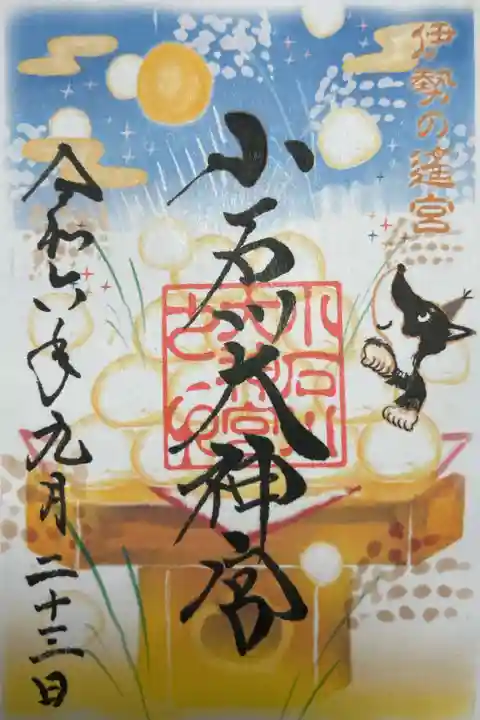 伊勢の遙宮
小石川大神宮
令和六年九月二十三日